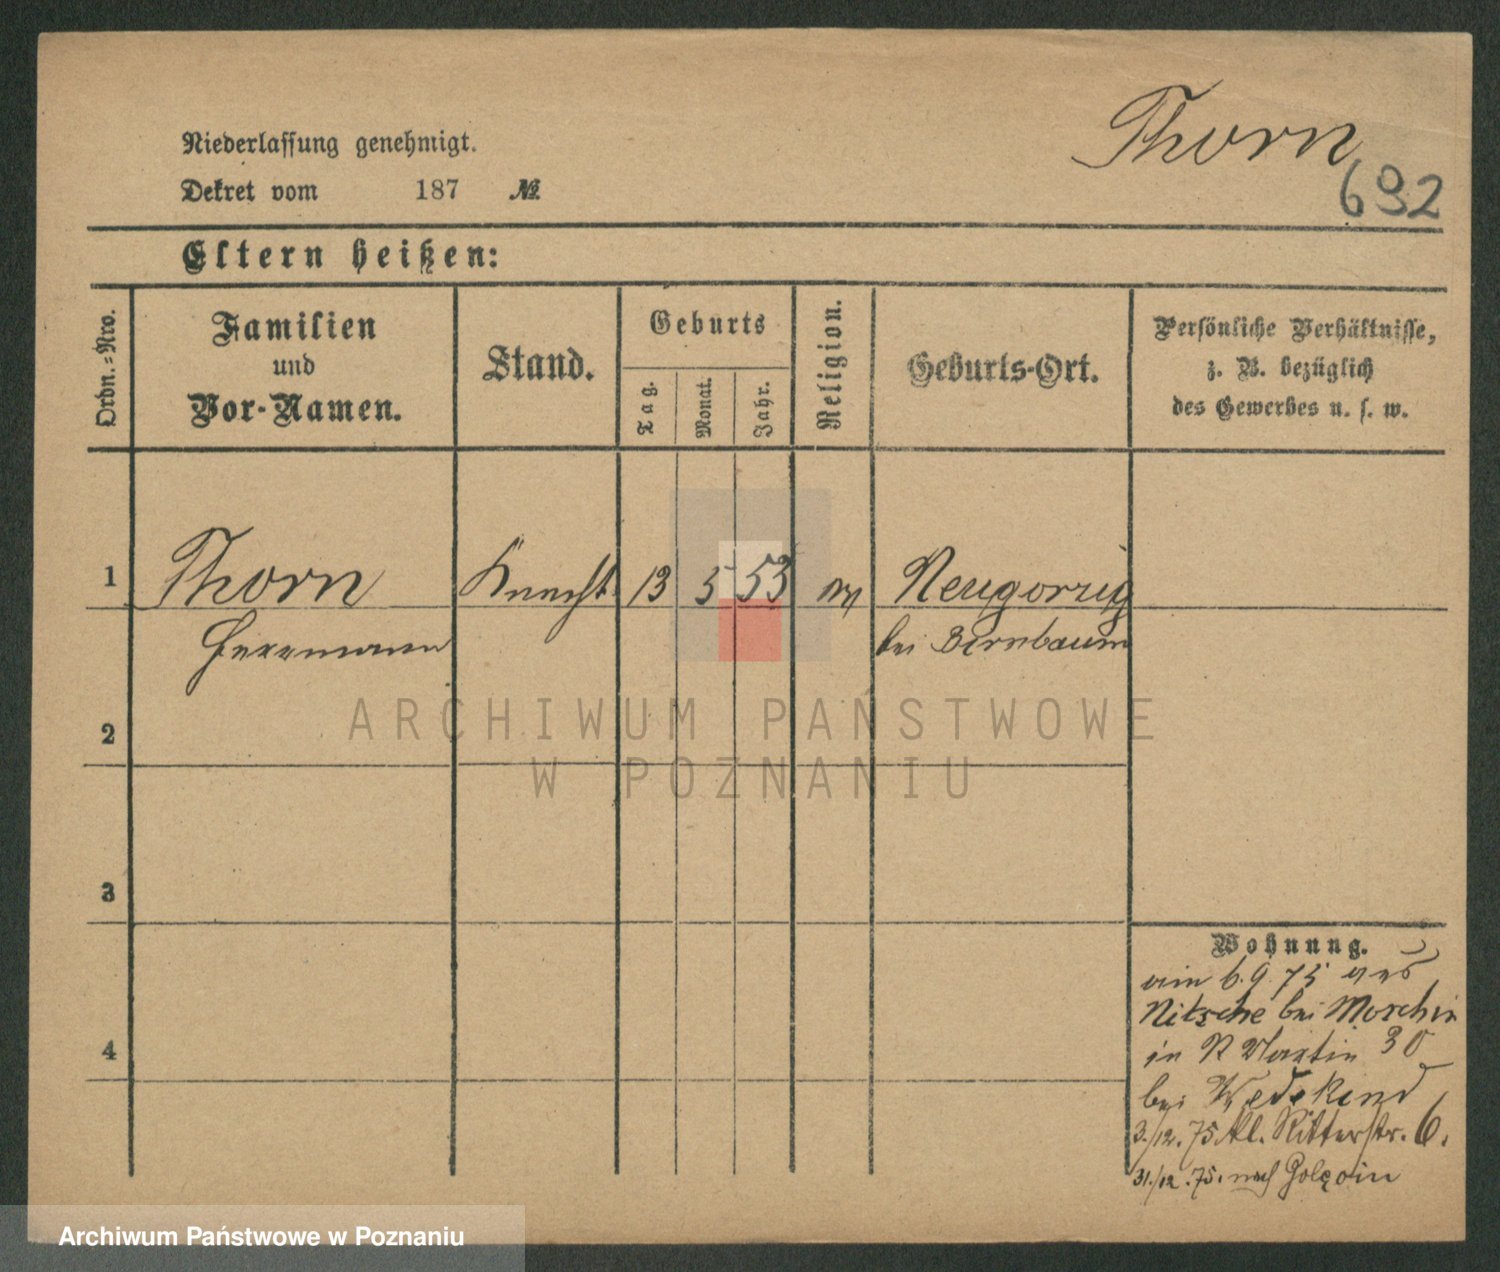 Thorn
692
Niederlassung genehmigt.
Dekret vom 187 №.
Eltern heißen:
Ordn.-Nro.
Familien
und
Vor-Namen.
Stand.
Geburts
Tag.
Monat.
Jahr.
Religion.
Geburts-Ort.
Persönliche Verhältnisse,
z. B. bezüglich
des Gewerbes u. s. w.
1 Thorn Knecht 13 5 53 Neugorzig
Herrmann bei Birnbaum
2
3
4
Wohnung.
am 6.9.75 aus
Nitsche bei Morchin
in Martin 30
bei Wedekind
3./12. 75. kl. Ritterstr. 6.
31./12. 75. nach Golęcin
ARCHIWUM PAŃSTWOWE
W POZNANIU
Archiwum Państwowe w Poznaniu